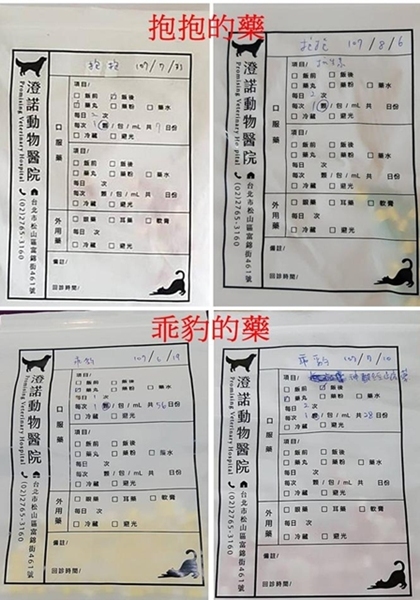 抱抱的藥
澄諾動物醫院
Promising Veterinary Hospital
台北市松山區富錦街461號
(02)2765-3160
抱抱 107/7/31
口服藥
項目/
□ 飯前 □ 飯後
□ 藥丸 □ 藥粉 □ 藥水
每日 2 次
每次 1 顆/包/mL 共 7 日份
□ 冷藏 □ 避光
項目/
□ 飯前 □ 飯後
□ 藥丸 □ 藥粉 □ 藥水
每日 次
每次 顆/包/mL 共 日份
□ 冷藏 □ 避光
外用藥
□ 眼藥 □ 耳藥 □ 軟膏
每日 次
□ 冷藏 □ 避光
備註/
回診時間/
澄諾動物醫院
Promising Veterinary Hospital
台北市松山區富錦街461號
(02)2765-3160
抱抱 107/8/6
口服藥
項目/
□ 飯前 □ 飯後
□ 藥丸 □ 藥粉 □ 藥水
每日 2 次
每次 1 顆/包/mL 共 日份
□ 冷藏 □ 避光
項目/
□ 飯前 □ 飯後
□ 藥丸 □ 藥粉 □ 藥水
每日 次
每次 顆/包/mL 共 日份
□ 冷藏 □ 避光
外用藥
□ 眼藥 □ 耳藥 □ 軟膏
每日 次
□ 冷藏 □ 避光
備註/
回診時間/
乖豹的藥
澄諾動物醫院
Promising Veterinary Hospital
台北市松山區富錦街461號
(02)2765-3160
乖豹
口服藥
項目/
□ 飯前 □ 飯後
□ 藥丸 □ 藥粉 □ 藥水
每日 1 次
每次 1 顆/包/mL 共 56 日份
□ 冷藏 □ 避光
項目/
□ 飯前 □ 飯後
□ 藥丸 □ 藥粉 □ 藥水
每日 次
每次 顆/包/mL 共 日份
□ 冷藏 □ 避光
外用藥
□ 眼藥 □ 耳藥 □ 軟膏
每日 次
□ 冷藏 □ 避光
備註/
回診時間/
澄諾動物醫院
Promising Veterinary Hospital
台北市松山區富錦街461號
(02)2765-3160
乖豹 107/7/10
口服藥
項目/
□ 飯前 □ 飯後
□ 藥丸 □ 藥粉 □ 藥水
每日 2 次
每次 1 顆/包/mL 共 28 日份
□ 冷藏 □ 避光
項目/
□ 飯前 □ 飯後
□ 藥丸 □ 藥粉 □ 藥水
每日 次
每次 顆/包/mL 共 日份
□ 冷藏 □ 避光
外用藥
□ 眼藥 □ 耳藥 □ 軟膏
每日 次
□ 冷藏 □ 避光
備註/
回診時間/